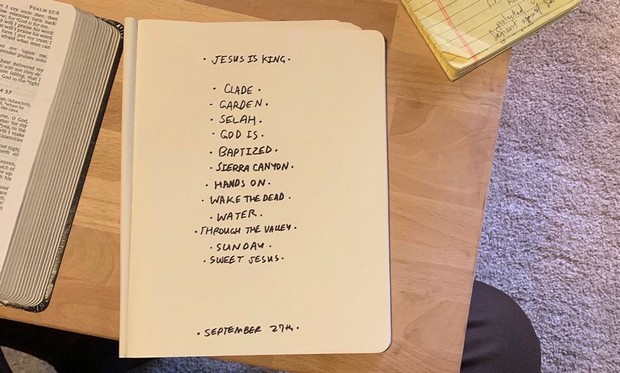 PSALM 37:6
· JESUS IS KING ·
· CLADE ·
· GARDEN ·
· SELAH ·
· GOD IS ·
· BAPTIZED ·
· SIERRA CANYON ·
· HANDS ON ·
· WAKE THE DEAD ·
· WATER ·
· THROUGH THE VALLEY ·
· SUNDAY ·
· SWEET JESUS ·
· SEPTEMBER 27th ·